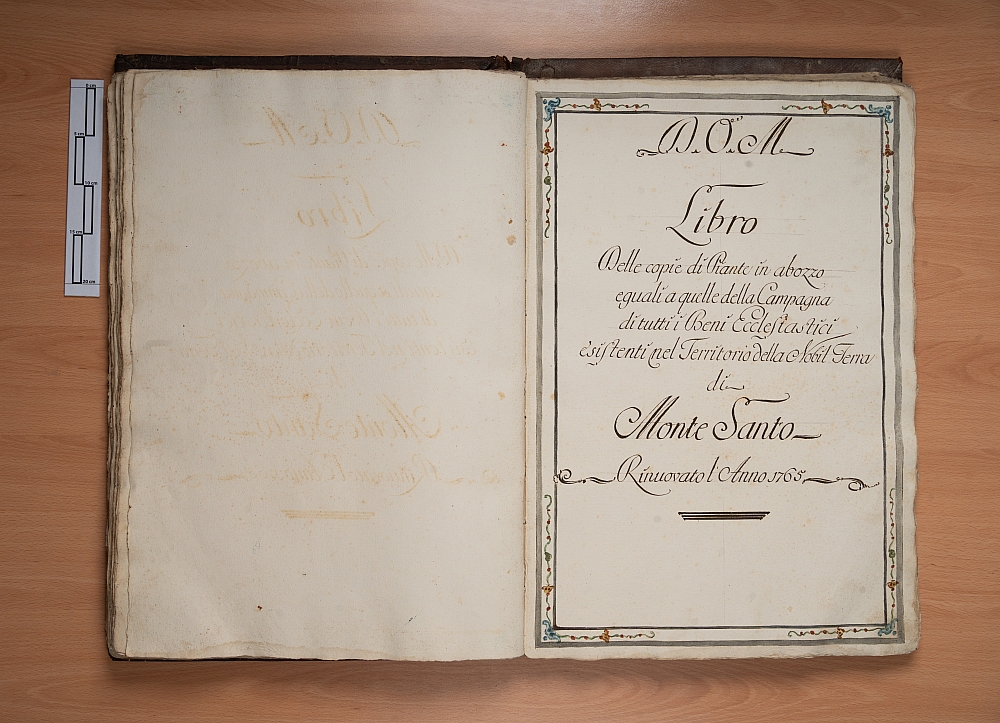 5 cm
5 cm
10 cm
15 cm
20 cm
D. O. M.
Libro
Delle copie di Piante in abozzo
eguali a quelle della Campagna
di tutti i Beni Ecclesiastici
esistenti nel Territorio della Nobil Terra
di
Monte Santo
Rinuovato l'Anno 1765